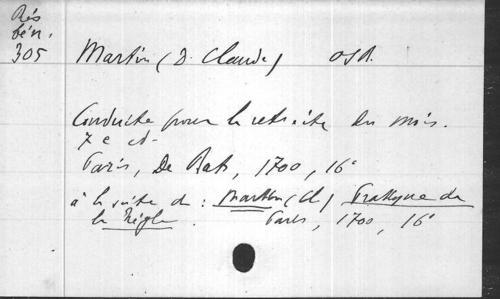 Rés
bén.
305
Martin (D. Claude) OSB.
Conduite pour la retraite du mois.
7e ed.
Paris, De Bats, 1700, 16°
à la suite de : Martin (Cl) Pratique de
la Règle. Paris, 1700, 16°